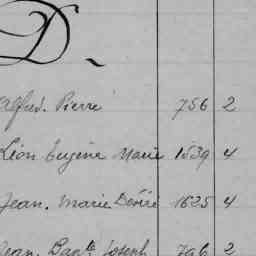 D.
Alfred. Pierre 756 2
Léon Eugène Marie 1539 4
Jean. Marie Désiré 1625 4
Jean. Bapte Joseph 796 2